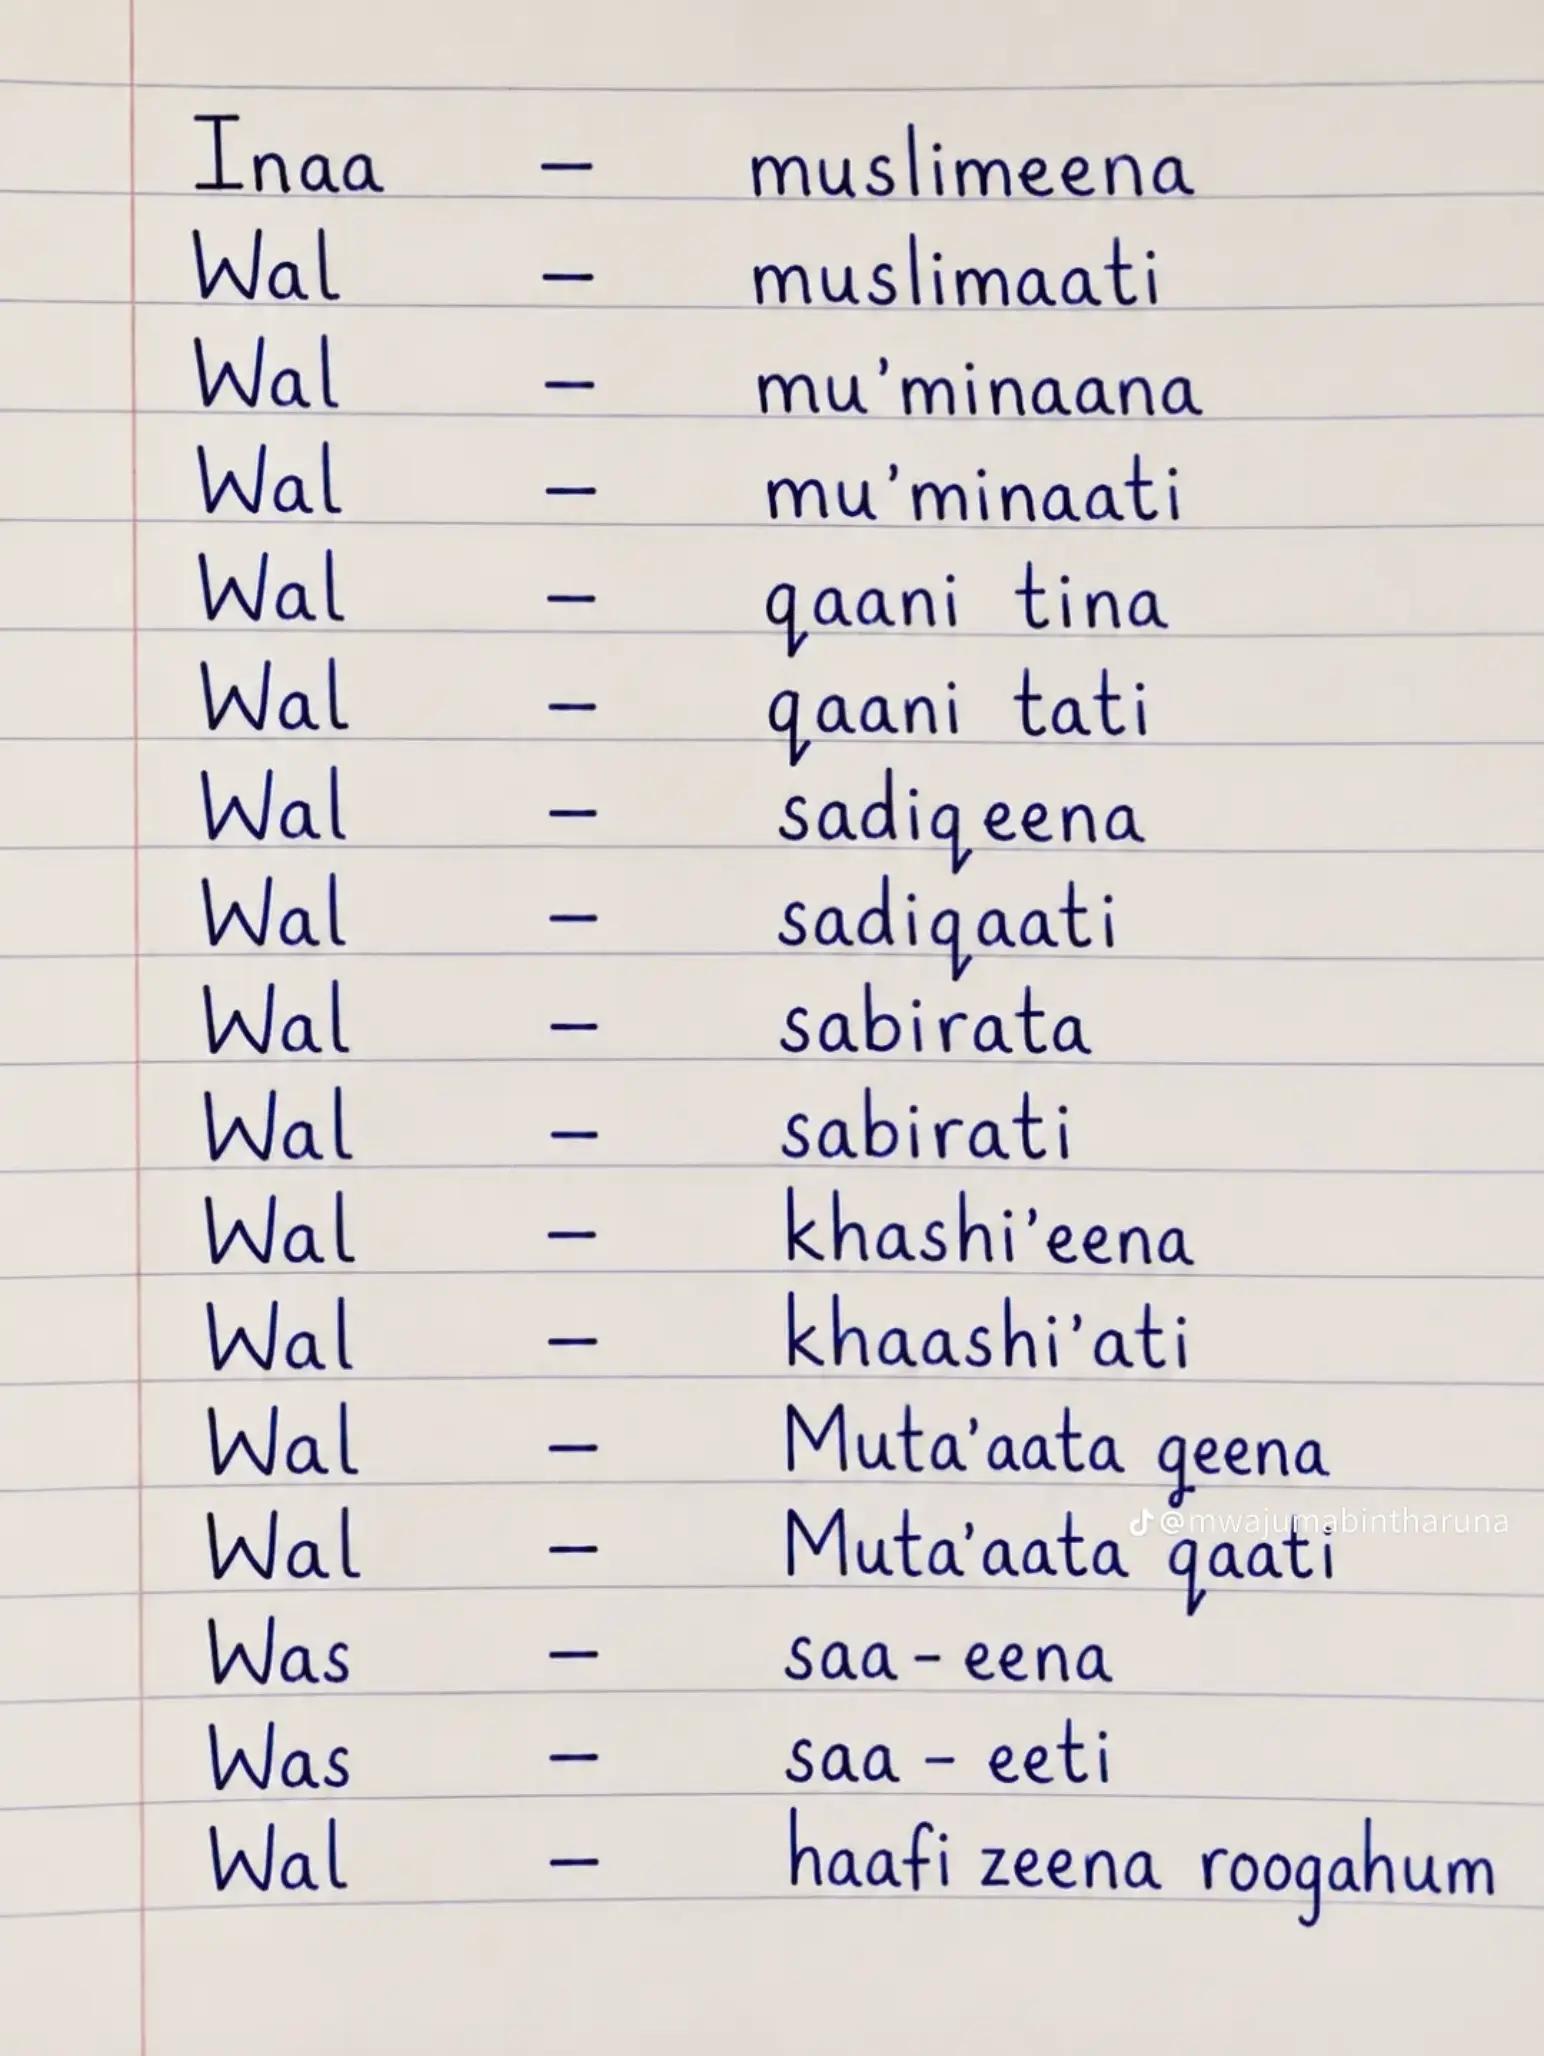 Inaa – muslimeena
Wal – muslimaati
Wal – mu'minaana
Wal – mu'minaati
Wal – qaani tina
Wal – qaani tati
Wal – sadiqeena
Wal – sadiqaati
Wal – sabirata
Wal – sabirati
Wal – khashi'eena
Wal – khaashi'ati
Wal – Muta'aata qeena
@mwajumabintharuna
Wal – Muta'aata qaati
Was – saa - eena
Was – saa - eeti
Wal – haafi zeena roogahum